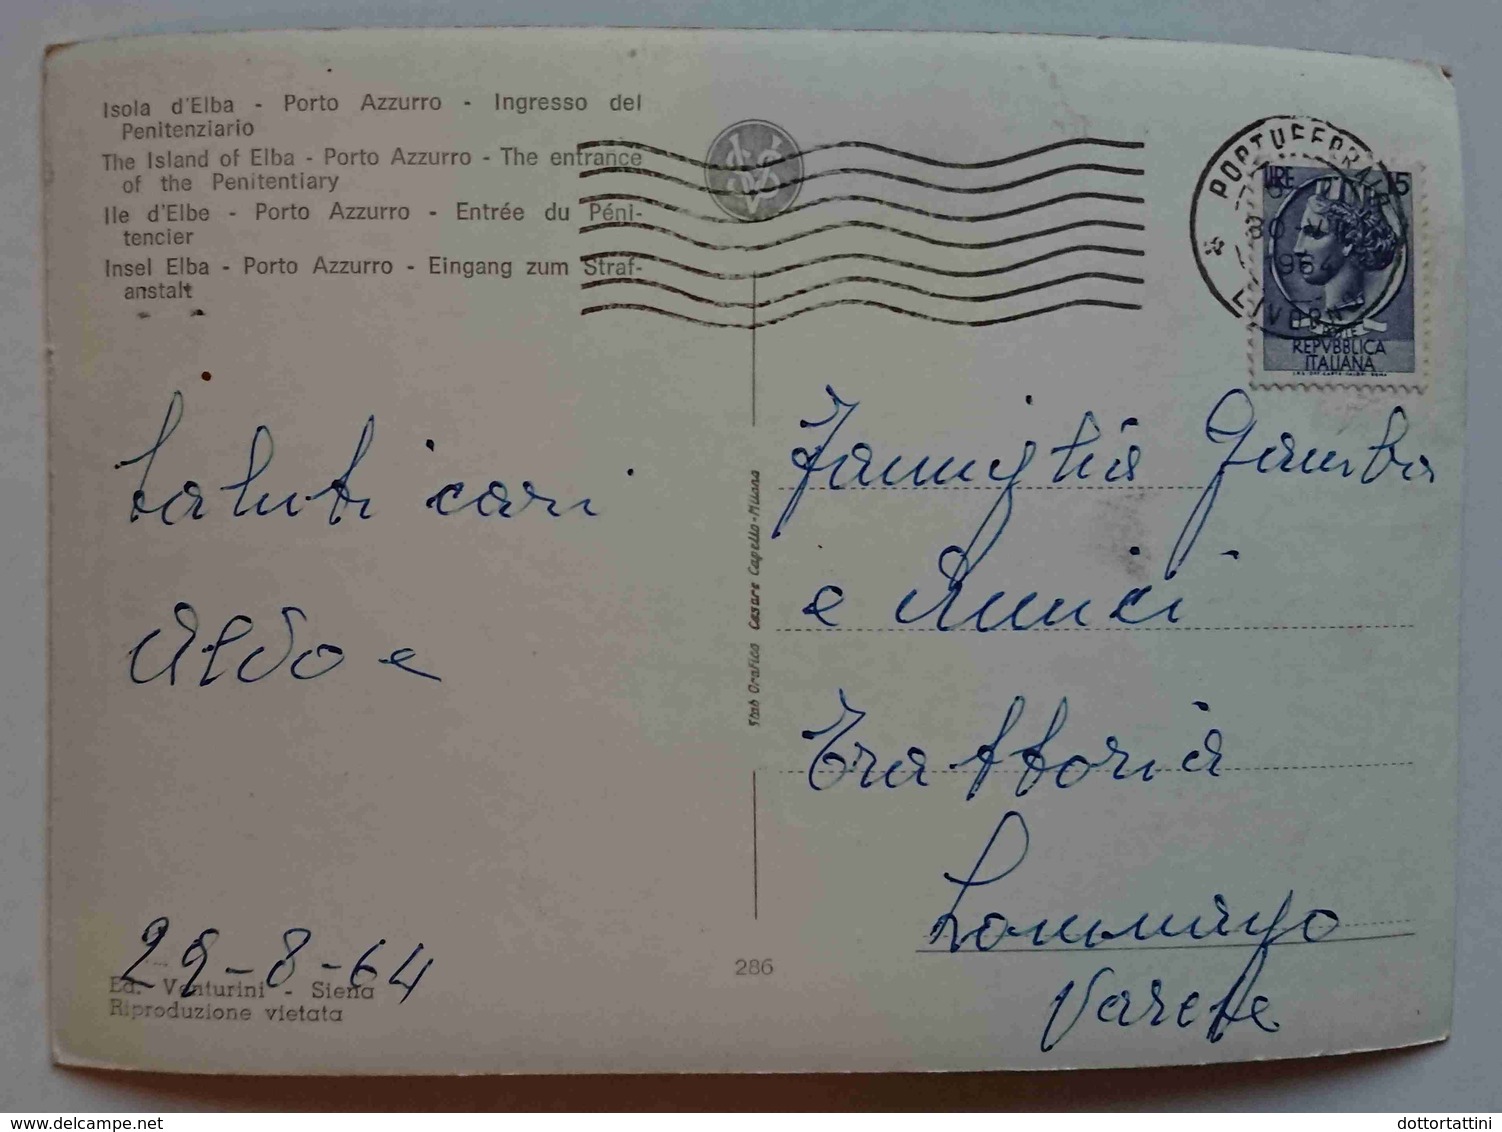 Isola d'Elba - Porto Azzurro - Ingresso del
Penitenziario
The Island of Elba - Porto Azzurro - The entrance
of the Penitentiary
Ile d'Elbe - Porto Azzurro - Entrée du Péni-
tencier
Insel Elba - Porto Azzurro - Eingang zum Straf-
anstalt
SVS
* PORTOFERRAIO
LIVORNO
1964
LIRE 15
REPVBBLICA
ITALIANA
Saluti cari
Aldo e
29-8-64
Ed. Venturini - Siena
Riproduzione vietata
286
Stab Grafico Cesare Capello-Milano
Famiglia Gamba
e Amici
Trattoria
Lommago
Varese
dottortattini